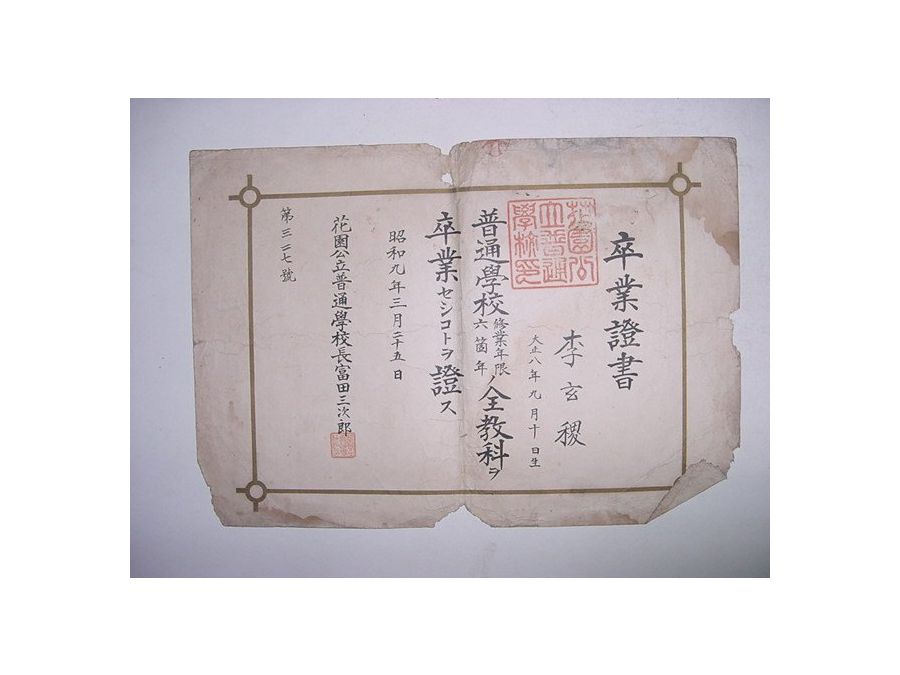 卒業證書
李玄稷
大正八年九月十日生
花園公
立普通
學校印
普通學校修業年限六箇年ノ全教科ヲ
卒業セシコトヲ證ス
昭和九年三月二十五日
花園公立普通學校長富田三次郎
第三二七號